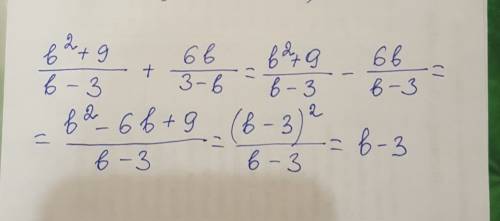 (b²+9)/(b-3) + 6b/(3-b) = (b²+9)/(b-3) - 6b/(b-3) =
= (b²-6b+9)/(b-3) = (b-3)²/(b-3) = b-3